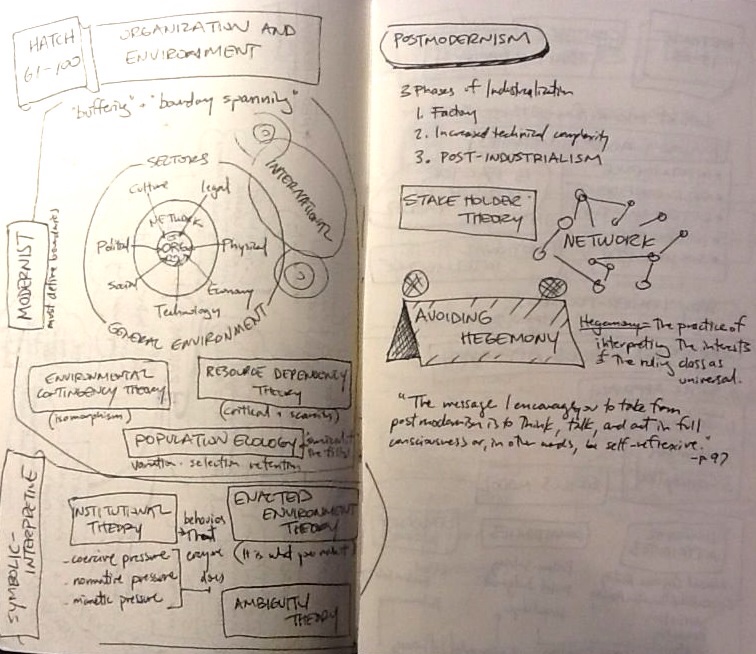 HATCH
61-100
ORGANIZATION AND
ENVIRONMENT
"buffering" + "bounday spanning"
MODERNIST
must define boundaries
SECTORS
Culture
legal
NETWORK
ORG
Political
Physical
Social
Economy
Technology
GENERAL ENVIRONMENT
INTERNATIONAL
ENVIRONMENTAL
CONTINGENCY THEORY
(isomorphism)
RESOURCE DEPENDENCY
THEORY
(critical + scarcity)
POPULATION ECOLOGY
"survival of
the fittest"
variation - selection retention
SYMBOLIC-
INTERPRETIVE
INSTITUTIONAL
THEORY
- coercive pressure
- normative pressure
- mimetic pressure
behaviors
that
ENACTED
ENVIRONMENT
THEORY
(It is what you make it)
AMBIGUITY
THEORY
POSTMODERNISM
3 Phases of Industrialization
1. Factory
2. Increased technical complexity
3. POST-INDUSTRIALISM
STAKE HOLDER
THEORY
NETWORK
AVOIDING
HEGEMONY
Hegemony - The practice of
interpreting the interests
of the ruling class as
universal.
"The message I encourage you to take from
postmodernism is to think, talk, and act in full
consciousness or, in other words, be self-reflexive."
- p 97